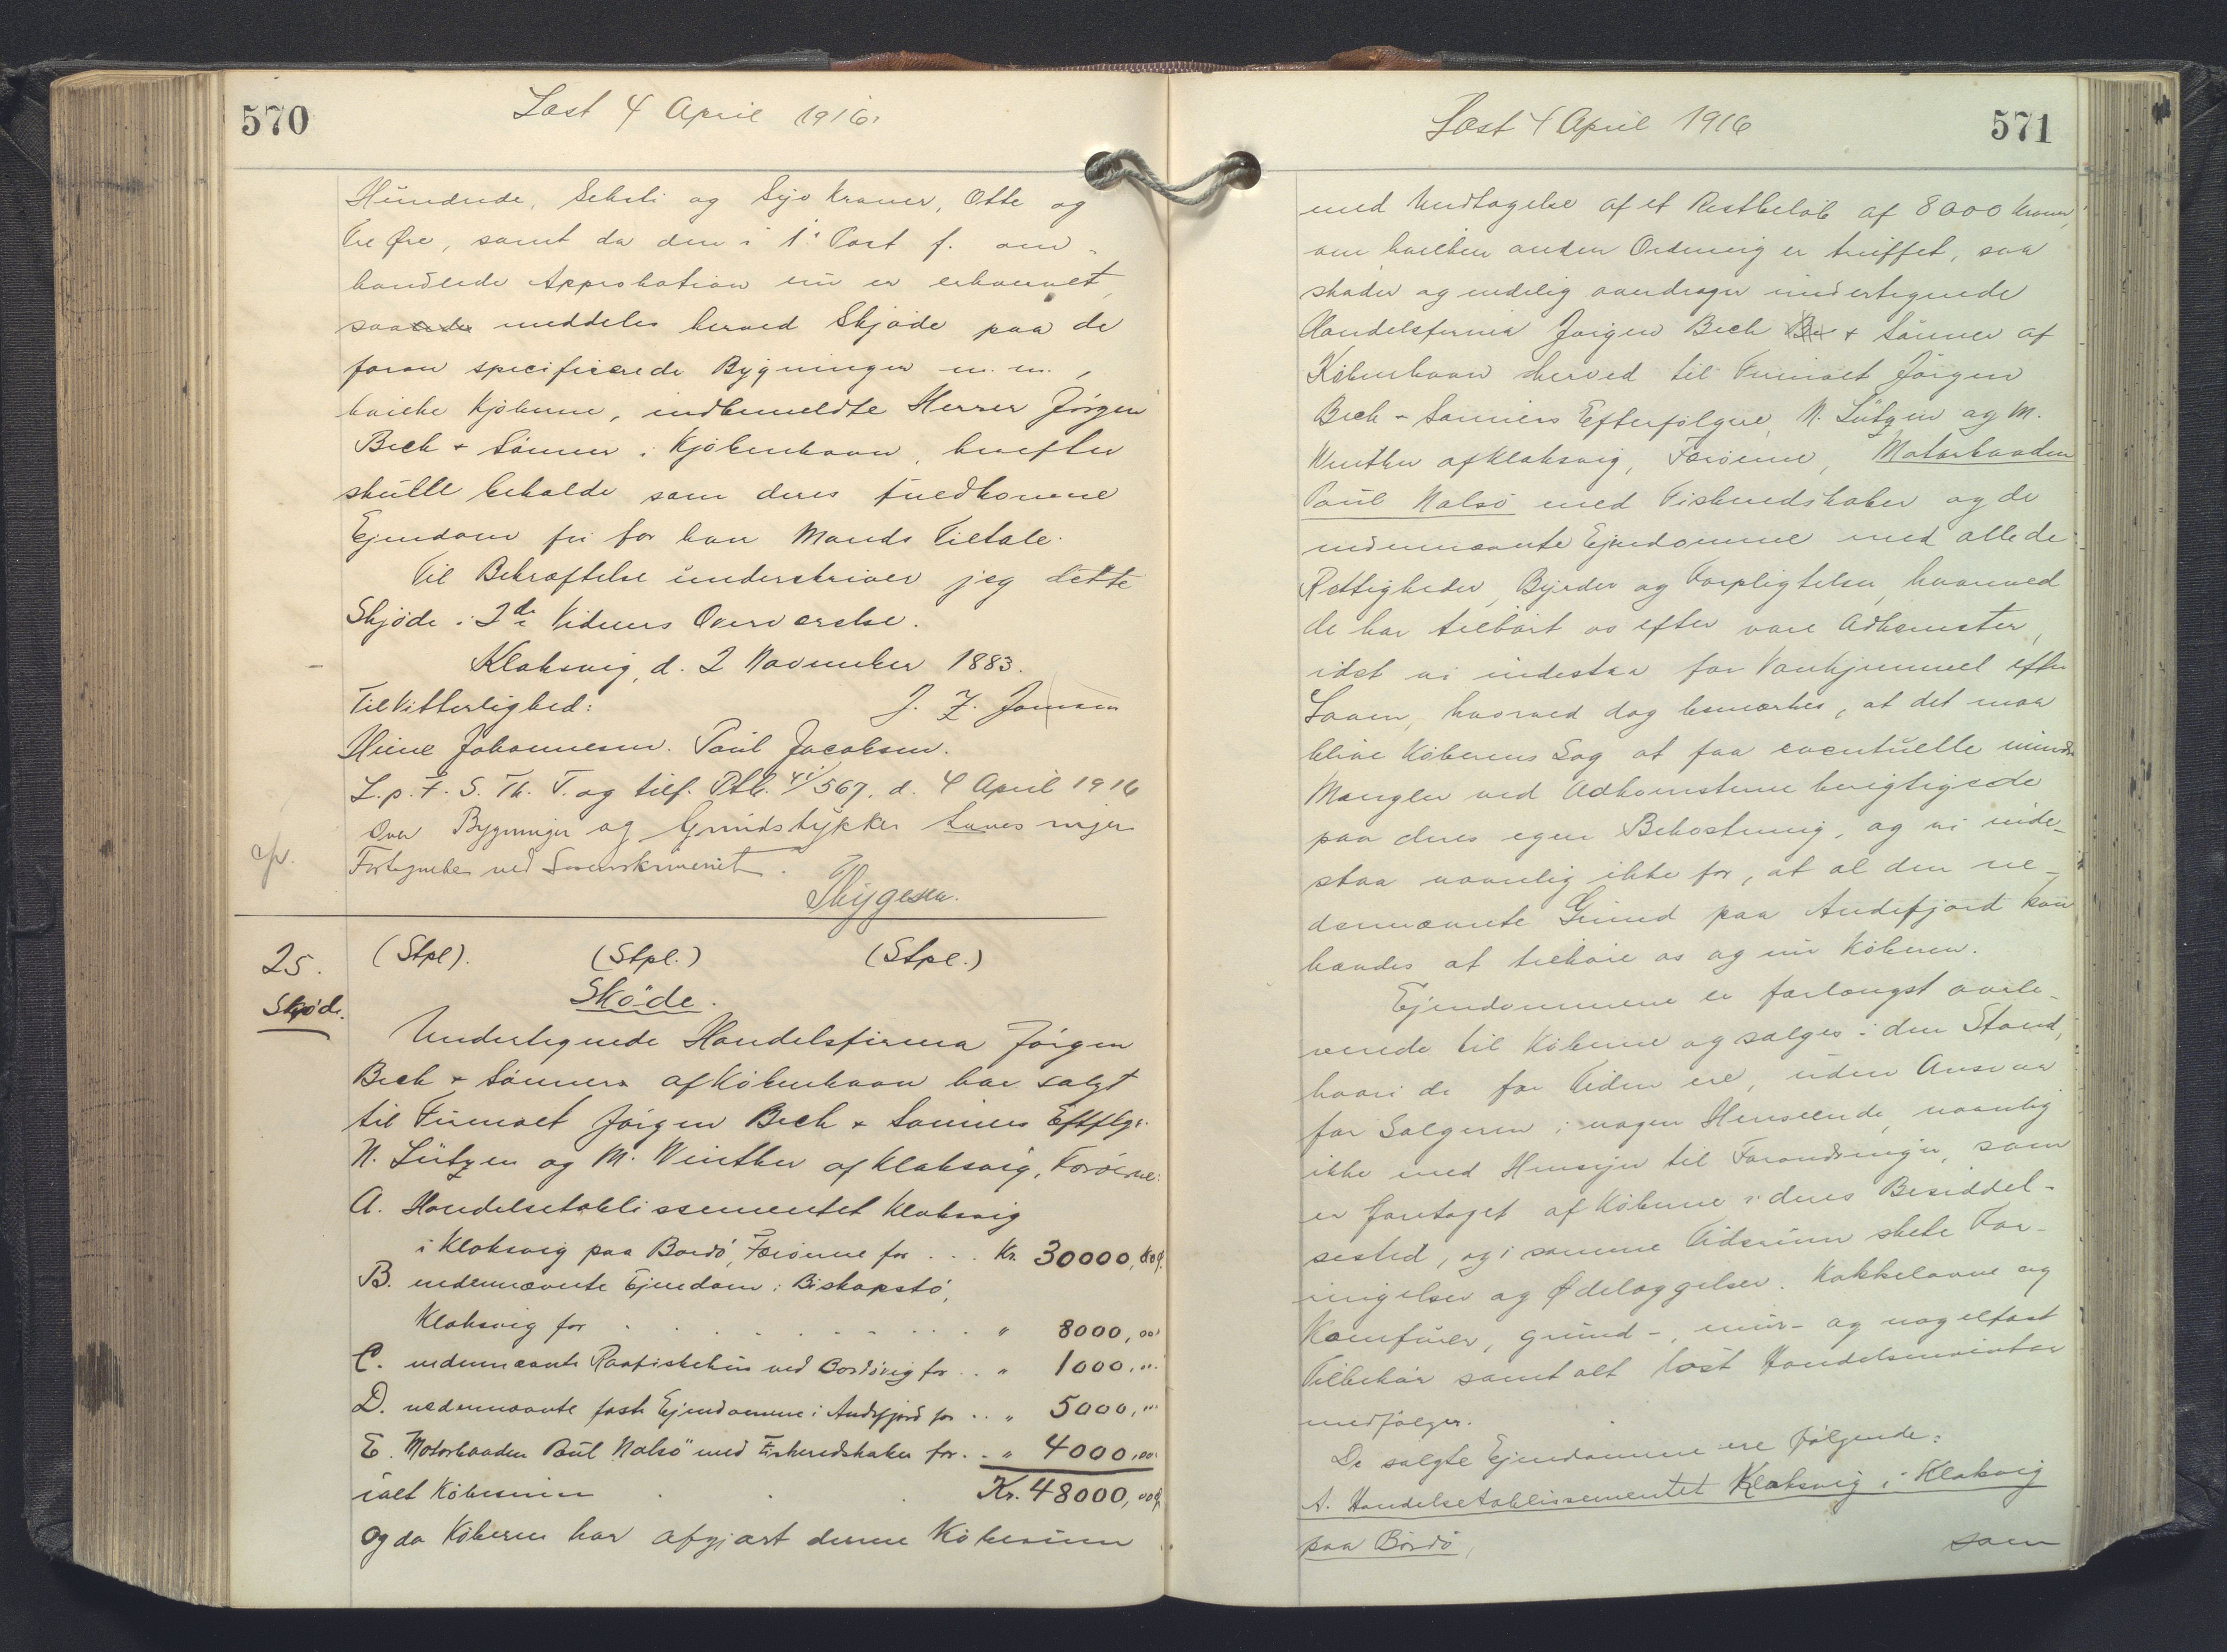 570
Læst 4 April 1916.
Hundrede, Seksti og Syv Kroner, Otte og
Tre Øre, samt da den i 1' Post f. om-
handlede Approbation nu er erhvervet,
saa meddeles herved Skjøde paa de
foran specificerede Bygninger m. m.,
hvilke Kjøberne, indbemeldte Herrer Jörgen
Bech + Sönner i Kjöbenhavn, herefter
skulle beholde som deres fuldkomne
Ejendom fri for hver Mands Tiltale.
Til Bekræftelse underskriver jeg dette
Skjöde i 2de Vidners Overværelse.
Klaksvig, d. 2 November 1883.
Til Vitterlighed: J. F. Jensen
Hine Johannesen. Poul Jacobsen.
L. p. F. S. Th. T. og tilf. Ptb. 41/567. d. 4 April 1916
Over Bygninger og Grundstykker haves ingen
Fortegnelse ved Sorenskriveriet.
Thygesen.
25. (Stpl). (Stpl.) (Stpl.)
Skjøde. Sköde.
Undertegnede Handelsfirma Jörgen
Bech + Sönner af Köbenhavn har solgt
til Firmaet Jörgen Bech + Sönners Eftflg.
N. Lützen og M. Winther af Klaksvig, Færöerne:
A. Handelsetablissementet Klaksvig
i Klaksvig paa Bordö, Færöerne for . . . Kr. 30000,00
B. nedennævnte Ejendom i Biskopstö,
Klaksvig for . . . " 8000,00
C. nedennævnte Raafiskehus ved Bordövig for . . " 1000,"
D. nedennævnte faste Ejendomme i Andefjord for . . " 5000,"
E. Motorbaaden "Poul Nolsö" med Fiskeredskaber for . . " 4000,00
ialt Købesum Kr. 48000,00
og da Köberne har afgjort denne Köbesum
Læst 4 April 1916
571
med Undtagelse af et Restbeløb af 8000 Kroner,
om hvilken anden Ordning er truffet, saa
skøder og endelig overdrager undertegnede
Handelsfirma Jörgen Bech + Sönner af
Köbenhavn herved til Firmaet Jörgen
Bech + Sönners Efterfølgere, N. Lützen og M.
Winther af Klaksvig, Færöerne, Motorbaaden
Poul Nolsö med Fiskeredskaber og de
nedennævnte Ejendomme med alle de
Rettigheder, Byrder og Forpligtelser, hvormed
de har tilhört os efter vore Adkomster,
idet vi indestaa for Vanhjemmel efter
Loven, hvorved dog bemærkes, at det maa
blive Köberens Sag at faa eventuelle mindre
Mangler ved Adkomsterne berigtigede
paa deres egen Bekostning, og vi inde-
staa navnlig ikke for, at al den ne-
dennævnte Grund paa Andefjord kan
kendes at tilhöre os og nu Köberen.
Ejendommene er forlængst over-
verede til Köberne og sælges i den Stand,
hvori de for Tiden ere, uden Ansvar
for Sælgeren i nogen Henseende, navnlig
ikke med Hensyn til Forandringer, som
er foretaget af Köberne i deres Besiddel-
sestid, og i samme Tidsrum skete For-
ringelser og Ødelæggelser. Kakkelovne og
Komfurer, grund-, mur- og nagelfast
Tilbehör samt alt löst Handelsinventar
medfølger.
De solgte Ejendomme ere følgende:
A. Handelsetablissementet Klaksvig i Klaksvig
paa Bordö, som